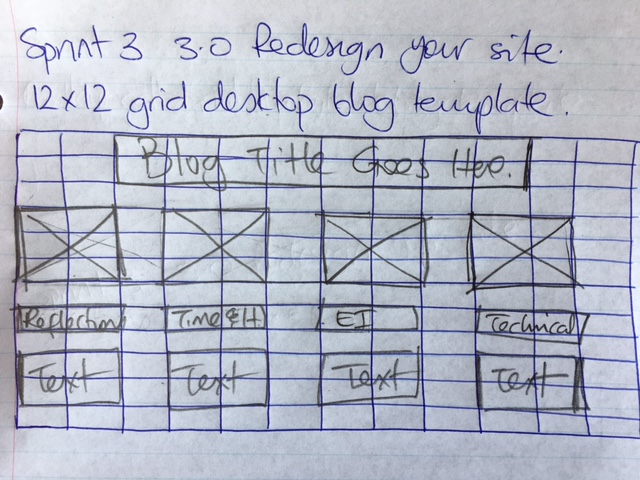 Sprint 3 3.0 Redesign your site.
12x12 grid desktop blog template.
Blog Title Goes Hee.
Reflection Time & H EI Technical
Text Text Text Text